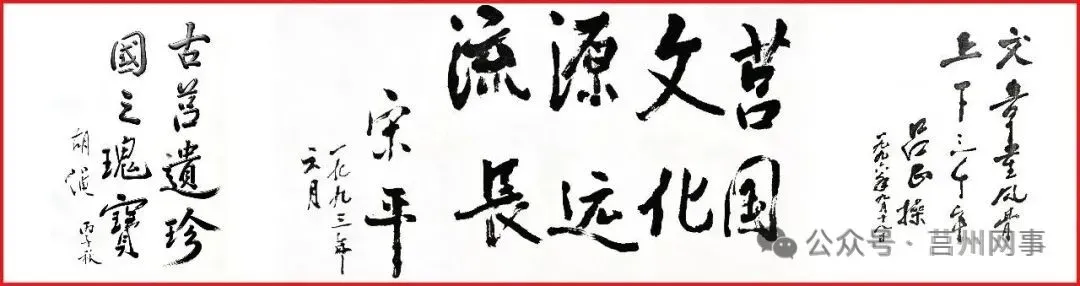 文章重风骨
上下三千年
吕正操
一九九六年九月十八日
莒国
文化
源远
流長
宋平
一九九三年
六月
古莒遺珍
國之瑰寶
胡
丙子秋
公众号 · 莒州网事